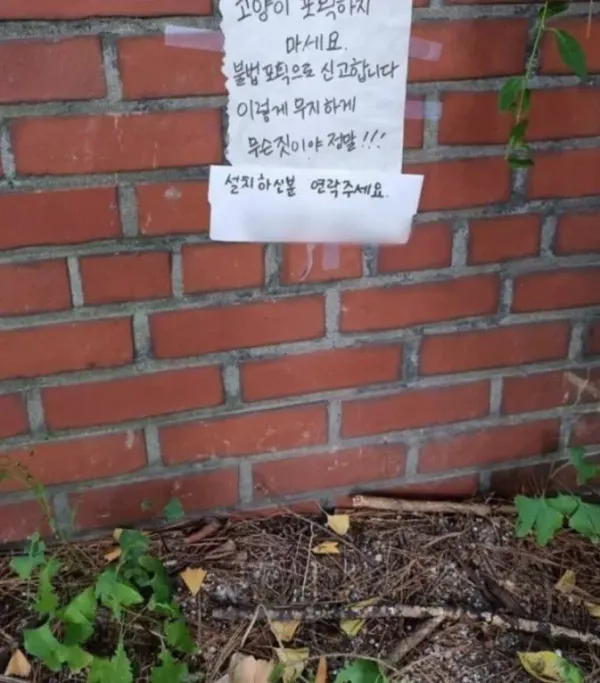 고양이 포획하지
마세요.
불법포획으로 신고합니다
이렇게 무지하게
무슨짓이야 정말!!!
설치하신분 연락주세요.